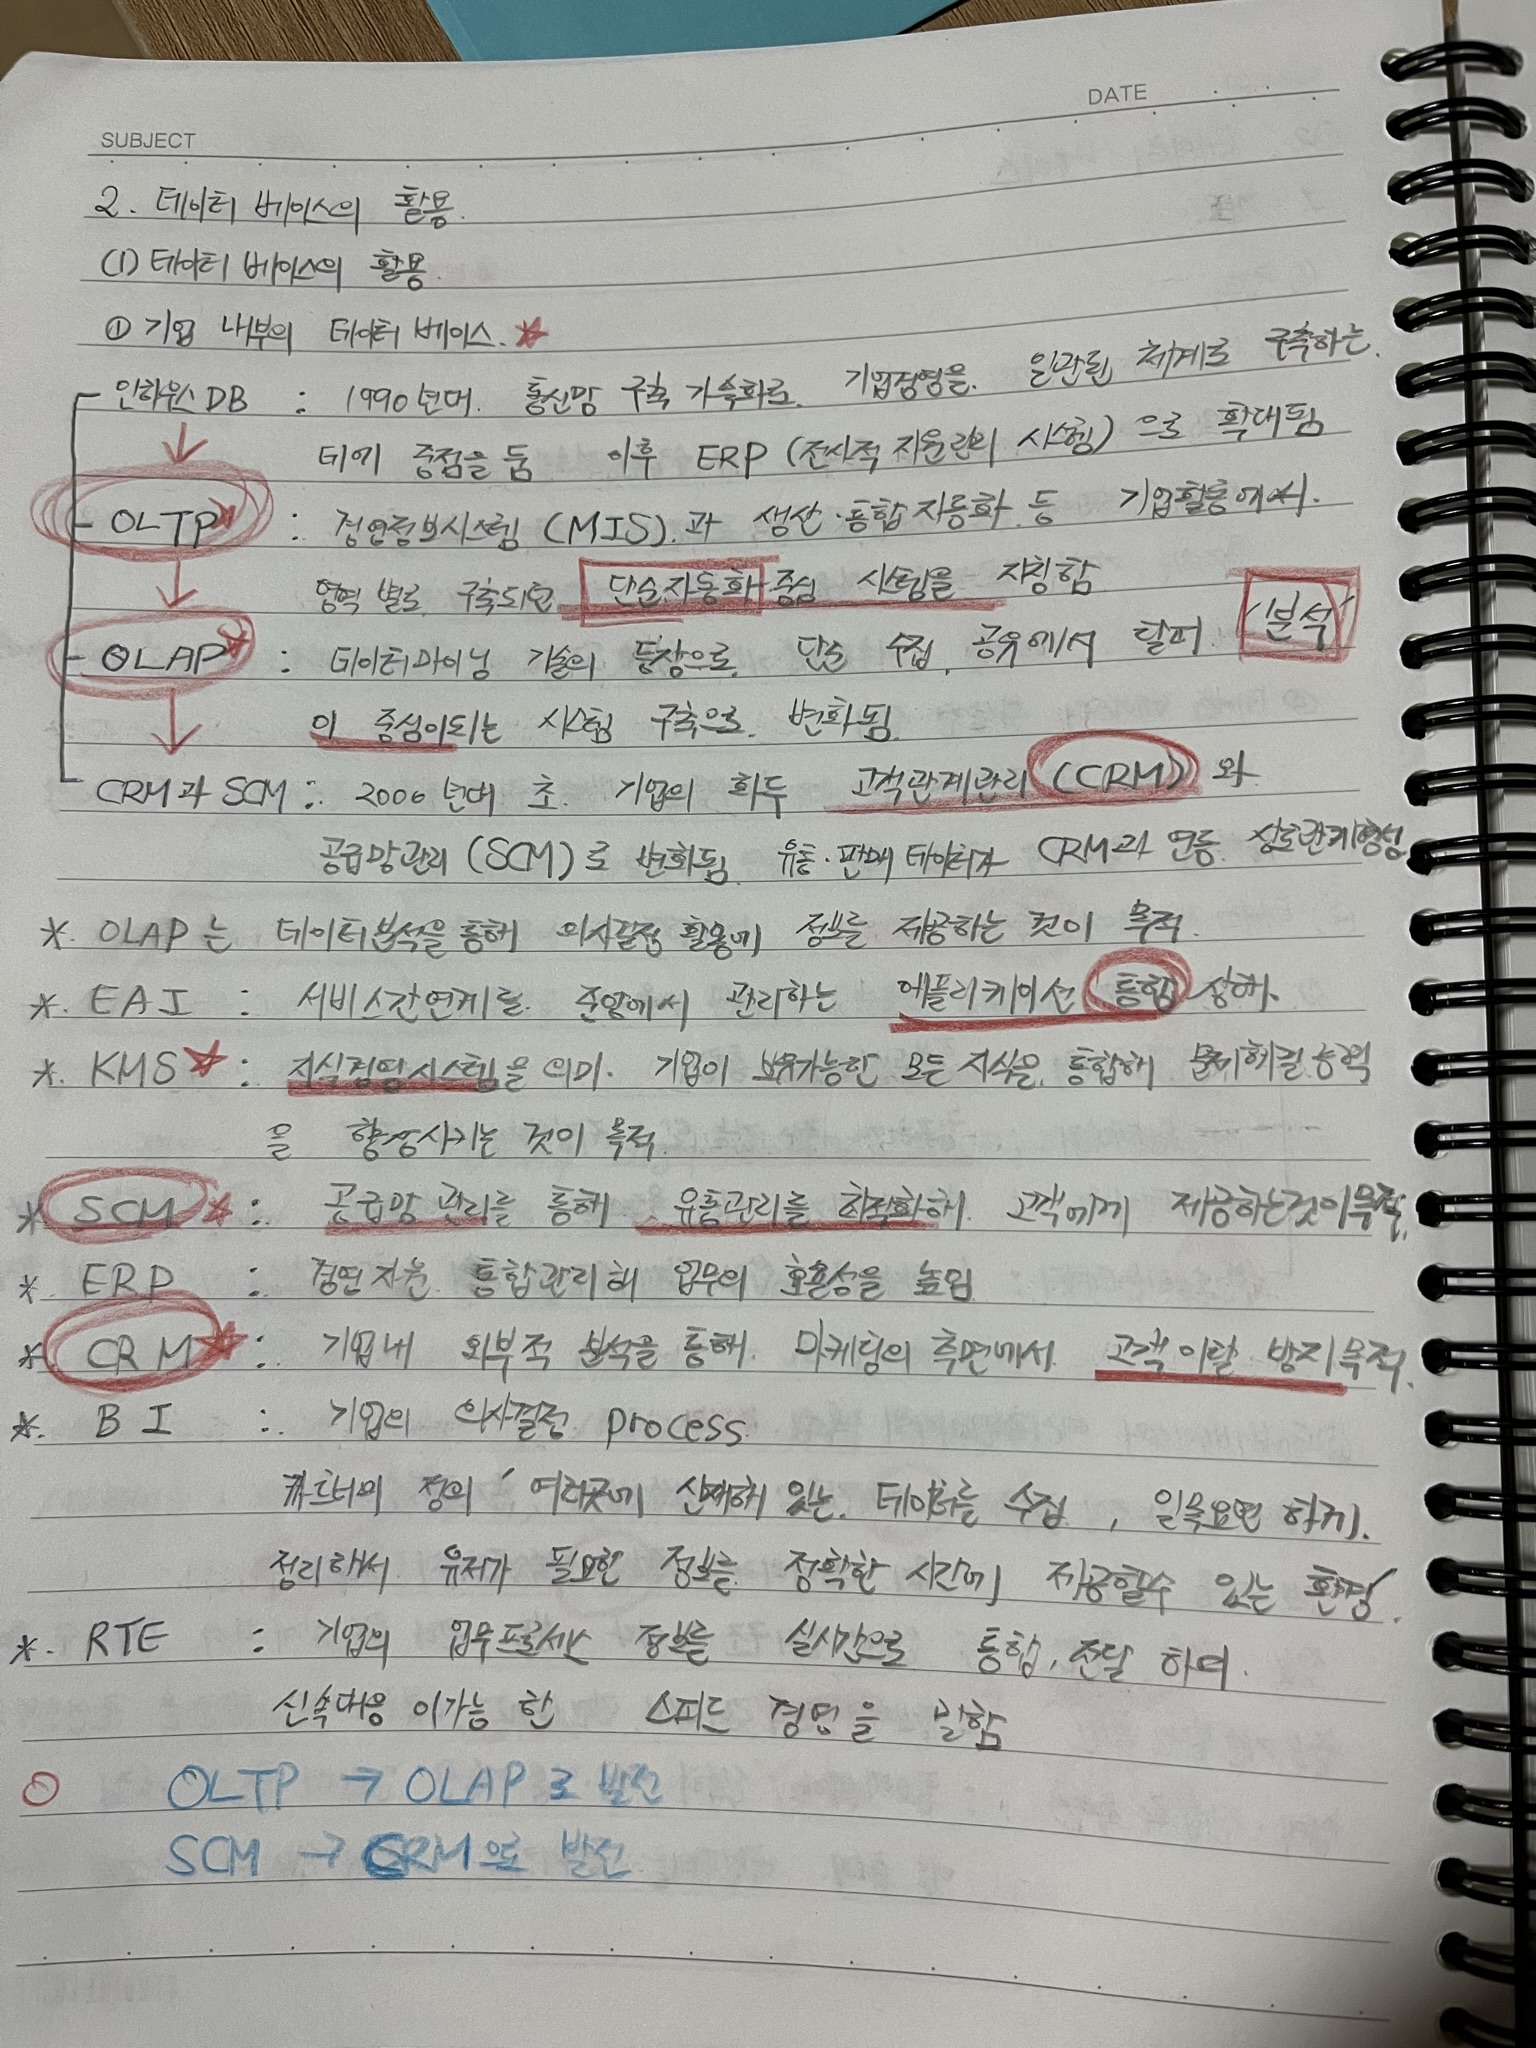 DATE
SUBJECT
2. 데이터 베이스의 활용.
(1) 데이터 베이스의 활용.
① 기업 내부의 데이터 베이스. ★
인하우스 DB : 1990년대. 통신망 구축 가속화로. 기업경영을. 일관된 체계로 구축하는.
데에 중점을 둠 이후 ERP (전사적 자원관리 시스템) 으로 확대됨
OLTP★ : 경영정보시스템 (MIS)과 생산·통합 자동화 등 기업활동에서.
영역 별로 구축되던 단순자동화 중심 시스템을 지칭함
OLAP★ : 데이터마이닝 기술의 등장으로, 단순 수집, 공유에서 탈피. '분석'
이 중심이되는 시스템 구축으로 변화됨.
CRM과 SCM : 2000년대 초. 기업의 화두 고객관계관리 (CRM) 와
공급망관리 (SCM)로 변화됨. 유통·판매 데이터가 CRM과 연동 상호관계형성
*. OLAP는 데이터분석을 통해 의사결정 활용에 정보를 제공하는 것이 목적.
*. EAI : 서비스간연계를. 중앙에서 관리하는 애플리케이션 통합
*. KMS★ : 지식경영시스템을 의미. 기업이 보유가능한 모든 지식을, 통합해 문제해결능력
을 향상시키는 것이 목적.
* SCM★ : 공급망 관리를 통해 유통관리를 최적화해. 고객에게 제공하는것이목적.
*. ERP : 경영 자원 통합관리해 업무의 효율성을 높임
* CRM★ : 기업내 외부적 분석을 통해. 마케팅의 측면에서 고객이탈 방지목적.
*. BI : 기업의 의사결정 process.
가트너의 정의 ' 여러곳에 산재해 있는. 데이터를 수집, 일목요연 하게.
정리해서 유저가 필요한 정보를 정확한 시간에 제공할수 있는 환경'.
*. RTE : 기업의 업무프로세스 정보를 실시간으로 통합, 전달 하며.
신속대응 이가능 한 스피드 경영을 말함
○ OLTP → OLAP로 발전
SCM → CRM으로 발전